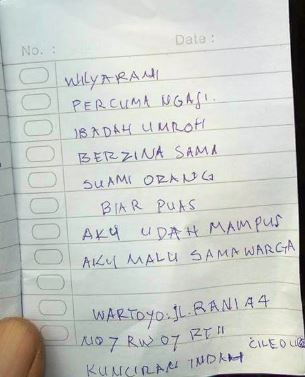 No. :
Date :
WILYARANI
PERCUMA NGAJI.
IBADAH UMROH
BERZINA SAMA
SUAMI ORANG
BIAR PUAS
AKU UDAH MAMPUS
AKU MALU SAMA WARGA
WARTOYO. JL. RANI A4
NO 7 RW 07 RT 11
CILEDUG
KUNCIRAN INDAH